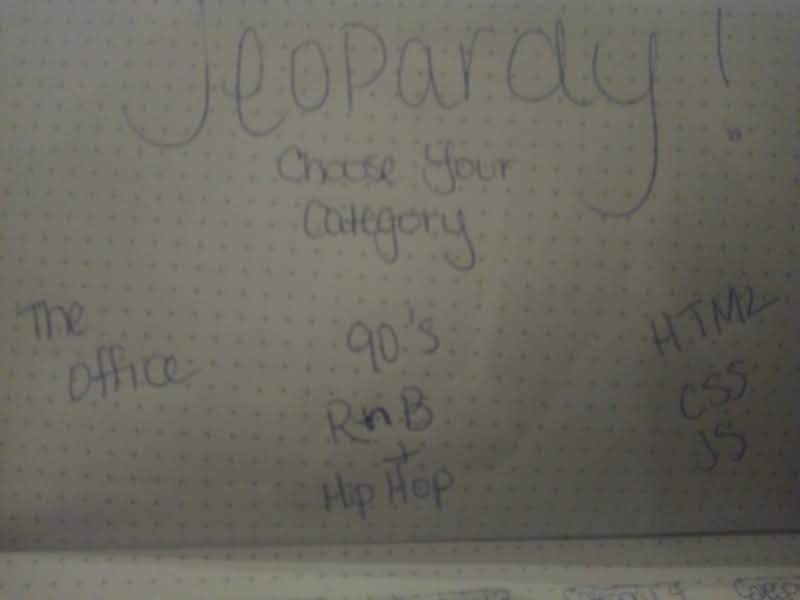 Jeopardy!
Choose Your
Category
The
Office
90's
RnB
+
Hip Hop
HTML
CSS
JS